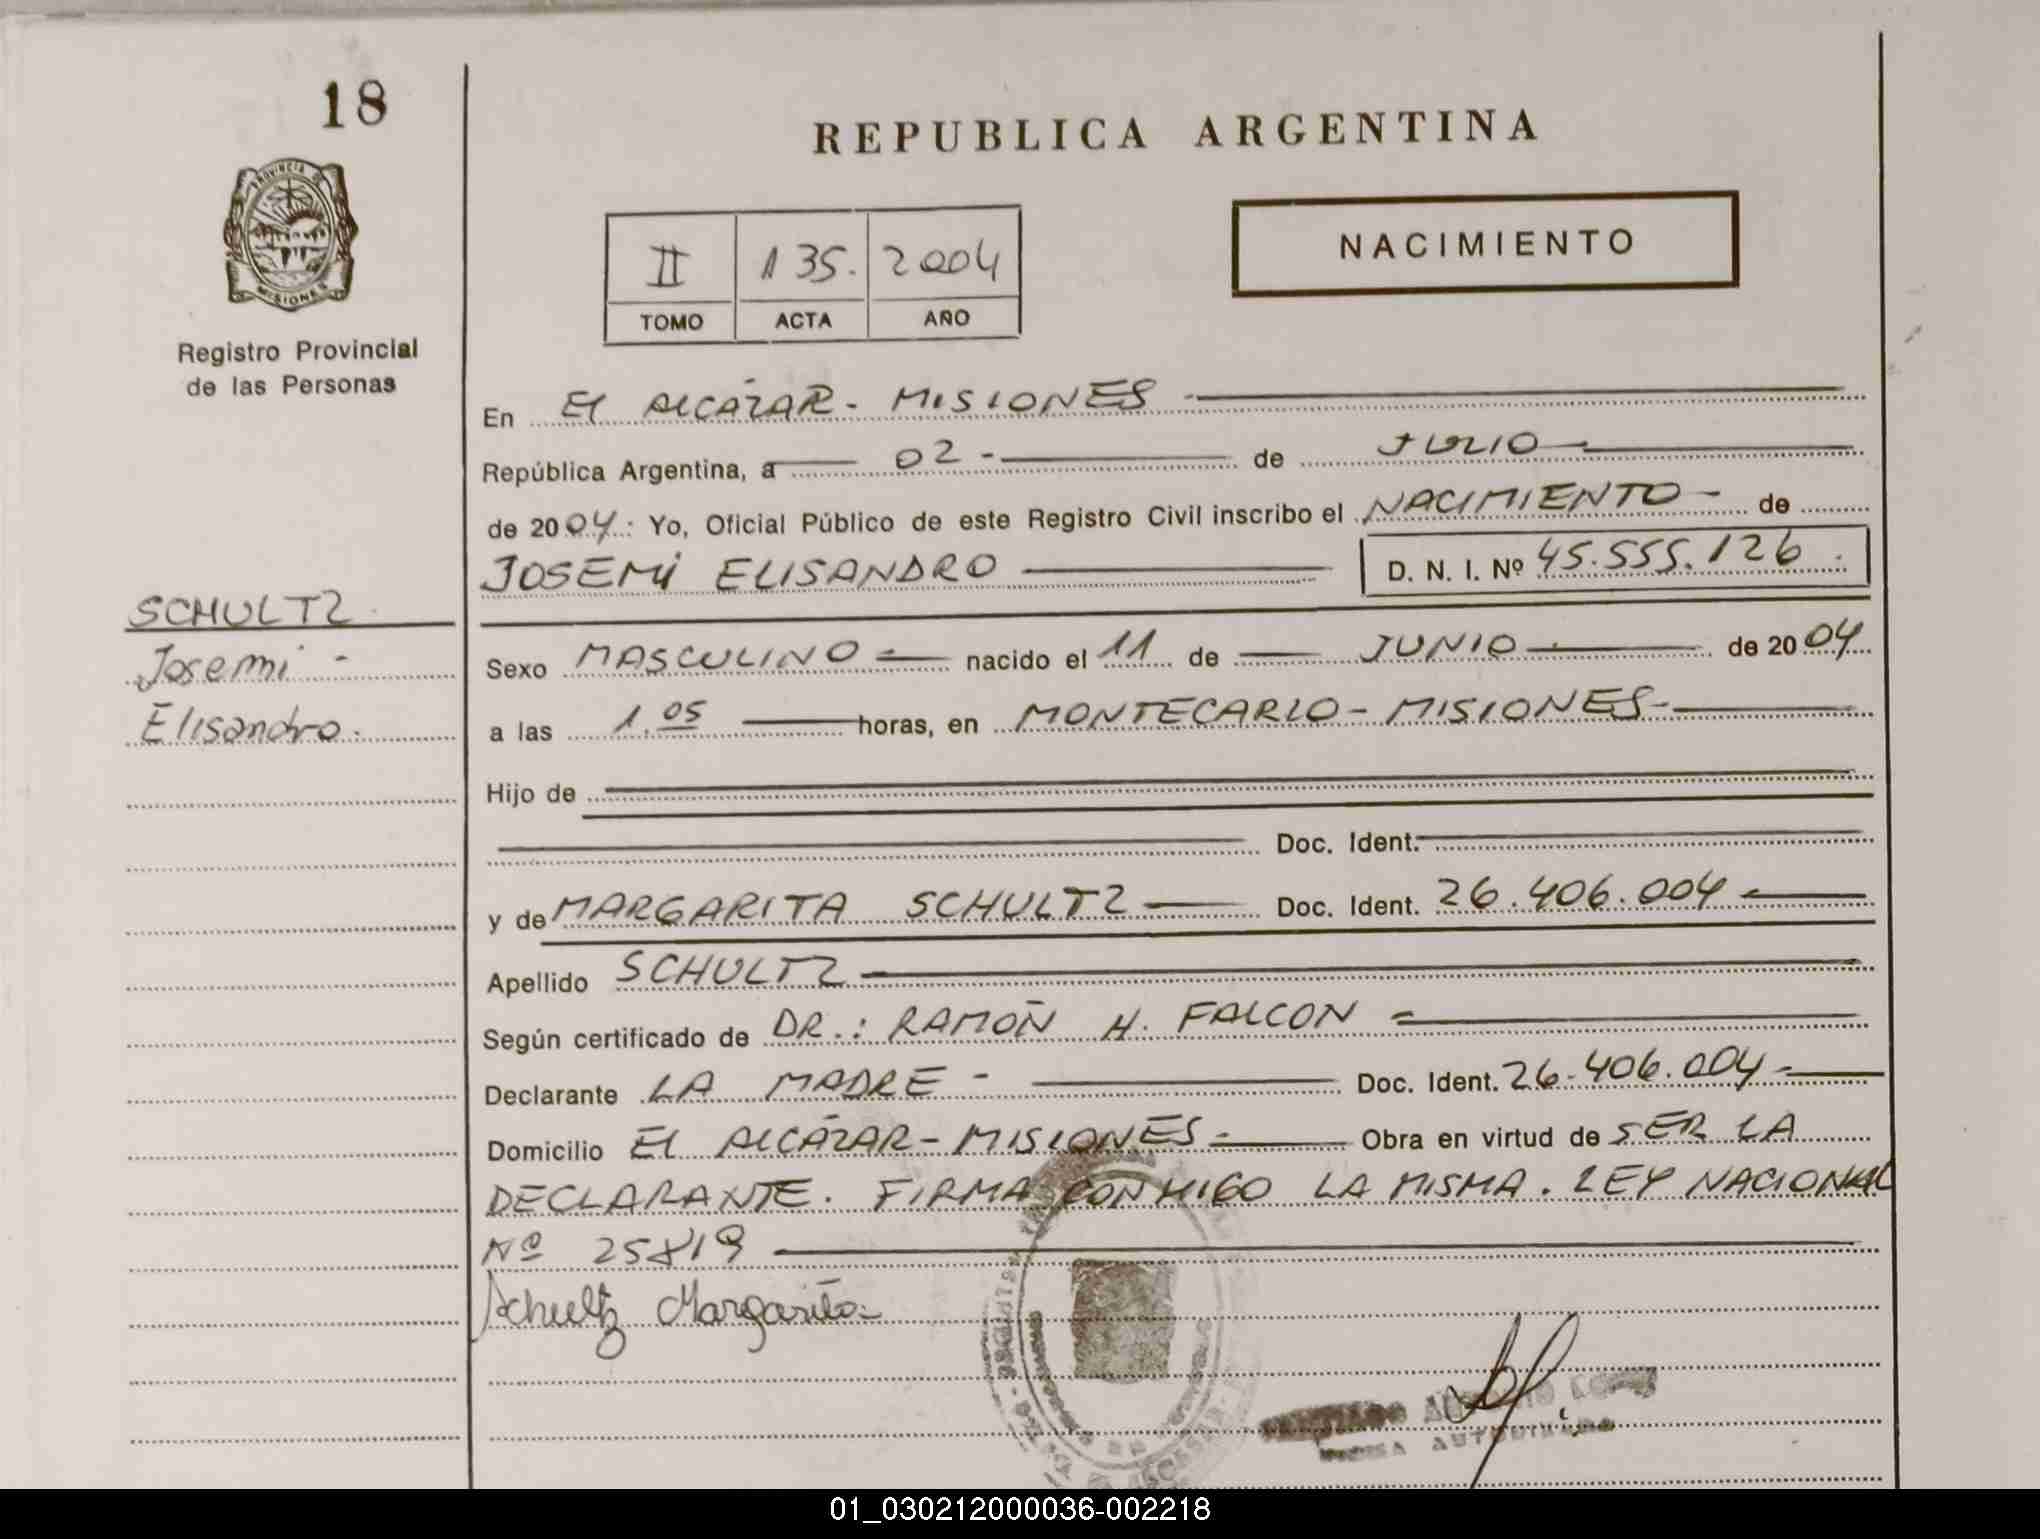 18
REPUBLICA ARGENTINA
PROVINCIA DE
MISIONES
Registro Provincial
de las Personas
II 135. 2004
TOMO ACTA AÑO
NACIMIENTO
En El ALCÁZAR - MISIONES
República Argentina, a 02 - de JULIO
de 2004.: Yo, Oficial Público de este Registro Civil inscribo el NACIMIENTO - de
JOSEMi ELISANDRO D. N. I. Nº 45.555.126.
SCHULTZ
Josemi -
Elisandro.
Sexo MASCULINO nacido el 11 de JUNIO de 2004
a las 1.05 horas, en MONTECARLO - MISIONES -
Hijo de
Doc. Ident.
y de MARGARITA SCHULTZ Doc. Ident. 26.406.004
Apellido SCHULTZ
Según certificado de DR.: RAMÓN H. FALCON
Declarante LA MADRE - Doc. Ident. 26.406.004
Domicilio El ALCÁZAR - MISIONES - Obra en virtud de SER LA
DECLARANTE. FIRMA CONMIGO LA MISMA. LEY NACIONAL
Nº 25819
Schultz Margarita
01_030212000036-002218